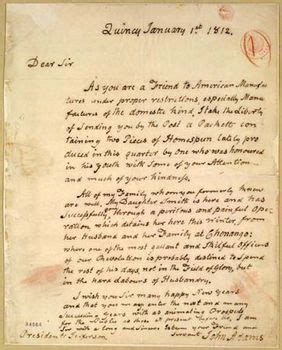 Quincy January 1st 1812.
Dear Sir
As you are a Friend to American Manufac
tures under proper restrictions, especially Manu
factures of the domestic kind, I take the Liberty
of Sending you by the Post a Packett con
taining two Pieces of Homespun lately pro
duced in this quarter by One who was honoured
in his youth with Some of your Attention
and much of your kindness.
All of my Family whom you formerly knew
are well. My Daughter Smith is here and has
Successfully gone through a perilous and painful Ope-
ration, which detains her here this Winter, from
her Husband and her Family at Chenango:
where one of the most gallant and Skilful Officers
of our Revolution is probably destined to Spend
the rest of his days, not in the Field of Glory, but
in the hard Labours of Husbandry.
I wish you Sir many happy New Years
and that you may enter the next and many
Succeeding Years with as animating Prospects
for the Public as those at present before Us. I am
Sir with a long and sincere Esteem your Friend and
Servant John Adams
President Jefferson